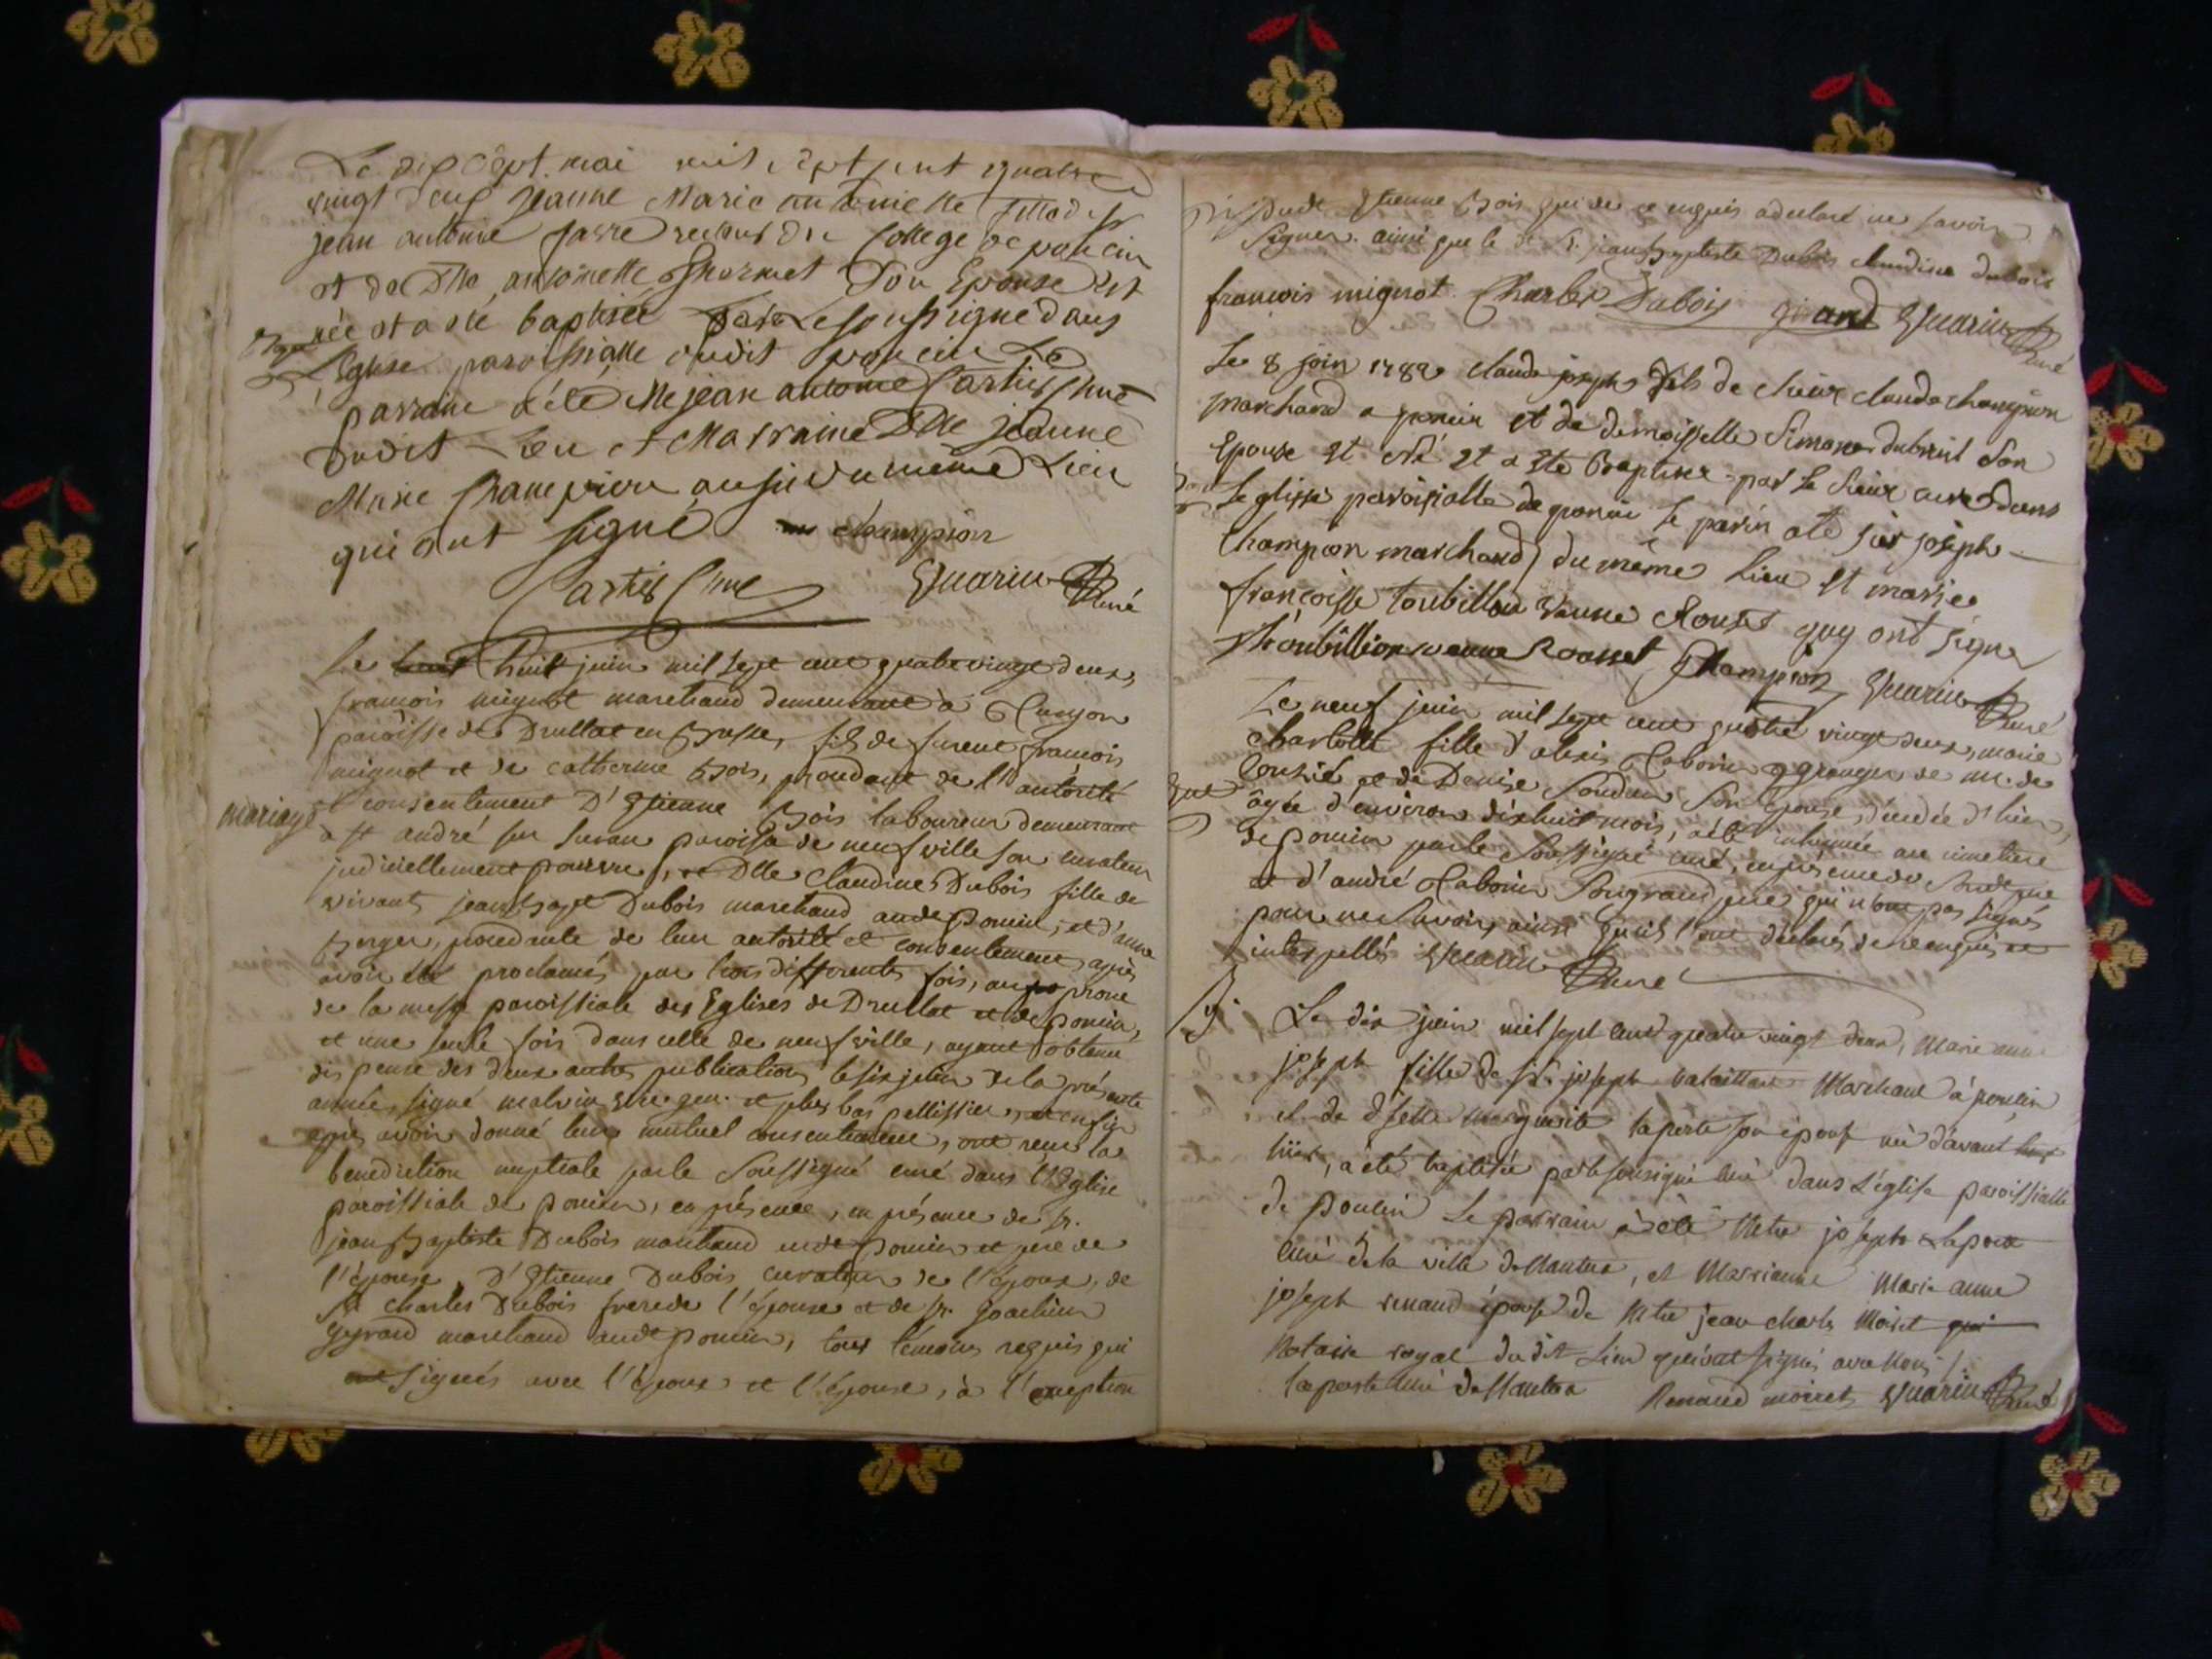 Le dix sept mai mil sept cent quatre
vingt deux jeanne Marie antoinette fille de sr
jean antoine favre recteur du college de poncin
et de Dlle antoinette son Epouse est
née et a été baptisée par le soussigné dans
L'Eglise paroissialle dudit poncin Le
parrain a été Me jean antoine Cartier Curé
dudit lieu et Marraine Dlle jeanne
Marie Champion aussi du même Lieu
qui ont signé champion
Cartier Curé Guarin Curé
Le huit juin mil sept cent quatre vingt deux,
françois mignot marchand demeurant à
paroisse de Druillat en Bresse, fils de furent françois
mignot et de catherine Bois, procedant de l'autorité
mariage
et consentement D'Etienne Bois laboureur demeurant
à st andré sur suran paroisse de neufville son curateur
judiciellement pourvu, et Dlle Claudine Dubois fille de
vivants jean Bapte Dubois marchand audt Poncin, et d'anne
Berger, procedante de leur autorité et consentement, après
avoir été proclamés par trois differentes fois, au prone
de la messe paroissiale des Eglises de Druillat et de poncin,
et une seule fois dans celle de neufville, ayant obtenu
dispense des deux autres publications le six juin de la présente
année, signé malvin vic. gen. et plus bas pellissier, et enfin
après avoir donné leur mutuel consentement, ont reçu la
benediction nuptiale par le soussigné curé dans l'Eglise
paroissiale de poncin, en présence, en présence de sr.
jean Baptiste Dubois marchand audt poncin et père de
l'épouse, D'Etienne Dubois curateur de l'époux, de
sr charles Dubois frere de l'épouse et de sr. joachim
gyraud marchand audt poncin, tous témoins requis qui
ont signés avec l'époux et l'épouse, à l'exception
dudt Etienne Bois qui de ce enquis a declaré ne savoir
signer. ainsi que le sr jean Baptiste Dubois claudine dubois
françois mignot Charles Dubois giraud Guarin Curé
Le 8 join 1782 claude joseph fils de sieur claude champion
marchand a poncin et de demoisselle Simone dubreul Son
Epouse et Né et a Eté Baptisé par Le Sieur curé dans
Le glisse paroisialle de poncin le parin a été sieur joseph
Champion marchand du même Lieu et marine
françoisse Toubillon veuve Rousset quy ont signe
Thoubillion veuve Rousset Champion Guarin Curé
Le neuf juin mil sept cent quatre vingt deux, marie
charlotte fille d'alexis Cabonin granger de mr. de
et de Denise son Epouse, décédée d'hier,
âgée d'environ dixhuit mois, a été inhumée au cimetiere
de poncin par le soussigné curé, en présence de
et d'andré Cabonin son grand pere qui n'ont pas signés
pour ne savoir, ainsi qu'ils l'ont déclarés de ce enquis et
interpellés Guarin Curé
Le dix juin mil sept cent quatre vingt deux, Marie anne
joseph fille de sr. joseph bataillard Marchand à poncin
et de dselle marguerite laporte son épouse née d'avant
hier, a été baptisée par le sousigné curé dans L'église paroissialle
de poncin Le parrain a été Mtre joseph Laporte
curé de la ville de Nantua, et Marrianne Marie anne
joseph renaud épouse de Mtre jean charles Moiret
Notaire royal du dit Lieu qui ont signés avec Nous
laporte curé de Nantua Renaud moiret Guarin Curé